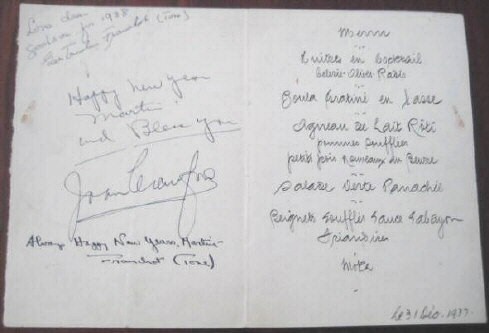 for 1938
Franchot (Tone)
Happy New Year
Martin
and Bless you
Joan Crawford
Always Happy New Years, Martin-
Franchot (Tone)
Menu
en Cocktail
Olives Radis
Gratiné en Tasse
Agneau de Lait Rôti
pommes soufflées
petits pois nouveaux au Beurre
Salade Verte Panachée
Beignets Soufflés Sauce Sabayon
Friandises
Moka
le 31 Déc. 1937.